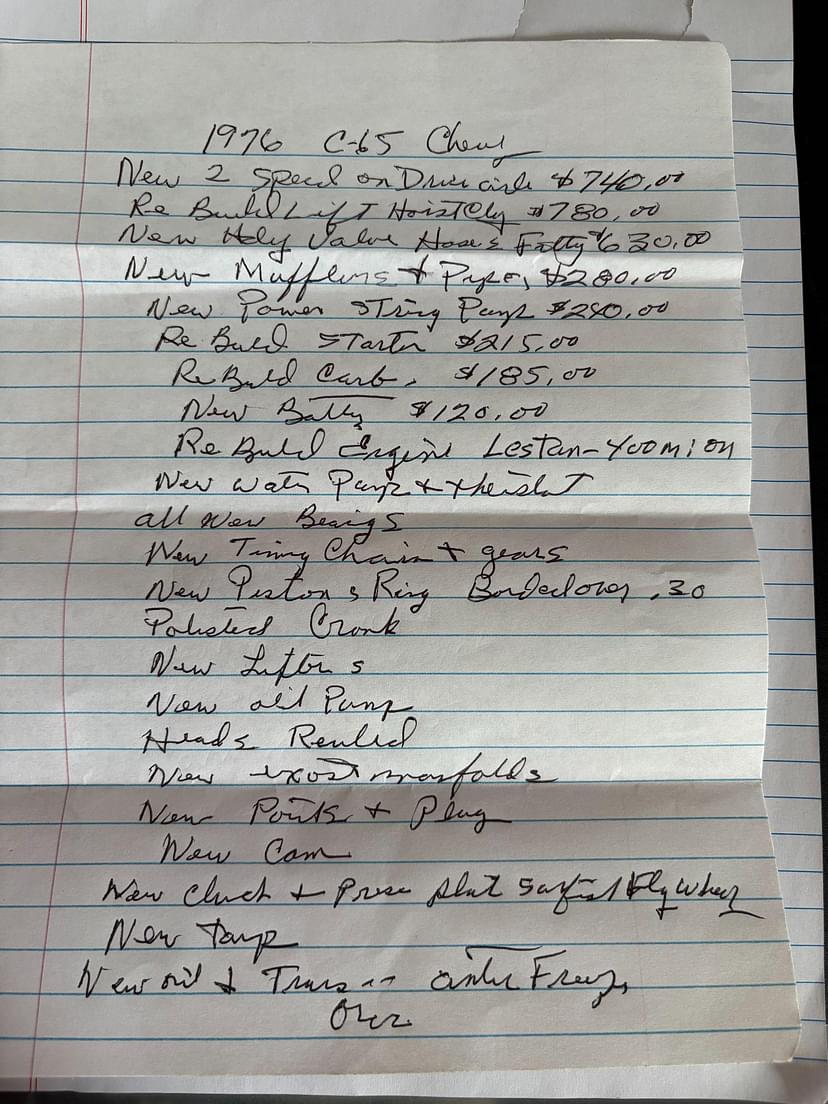 1976 C-65 Chevy
New 2 Speed on Drive axle $740.00
Re Build Lift Hoist Cly $780.00
New Hdy Valve Hoses Fitty $630.00
New Mufflers & Pipes $280.00
New Power String Pump $240.00
Re Build Starter $215.00
Re Build Carb. $185.00
New Batty $120.00
Re Build Engine Les Than - 400 mi on
New Water Pump & 
All New Beaigs
New Timing Chain & gears
New Pistons Ring Borded over .30
Polished Crank
New Lifters
New oil Pump
Heads
New exost manfolds
New Points & Plug
New Cam
New Cluch & Press plat Flywheel
New Tarp
New oil & Trans -- anter Freez,
Over